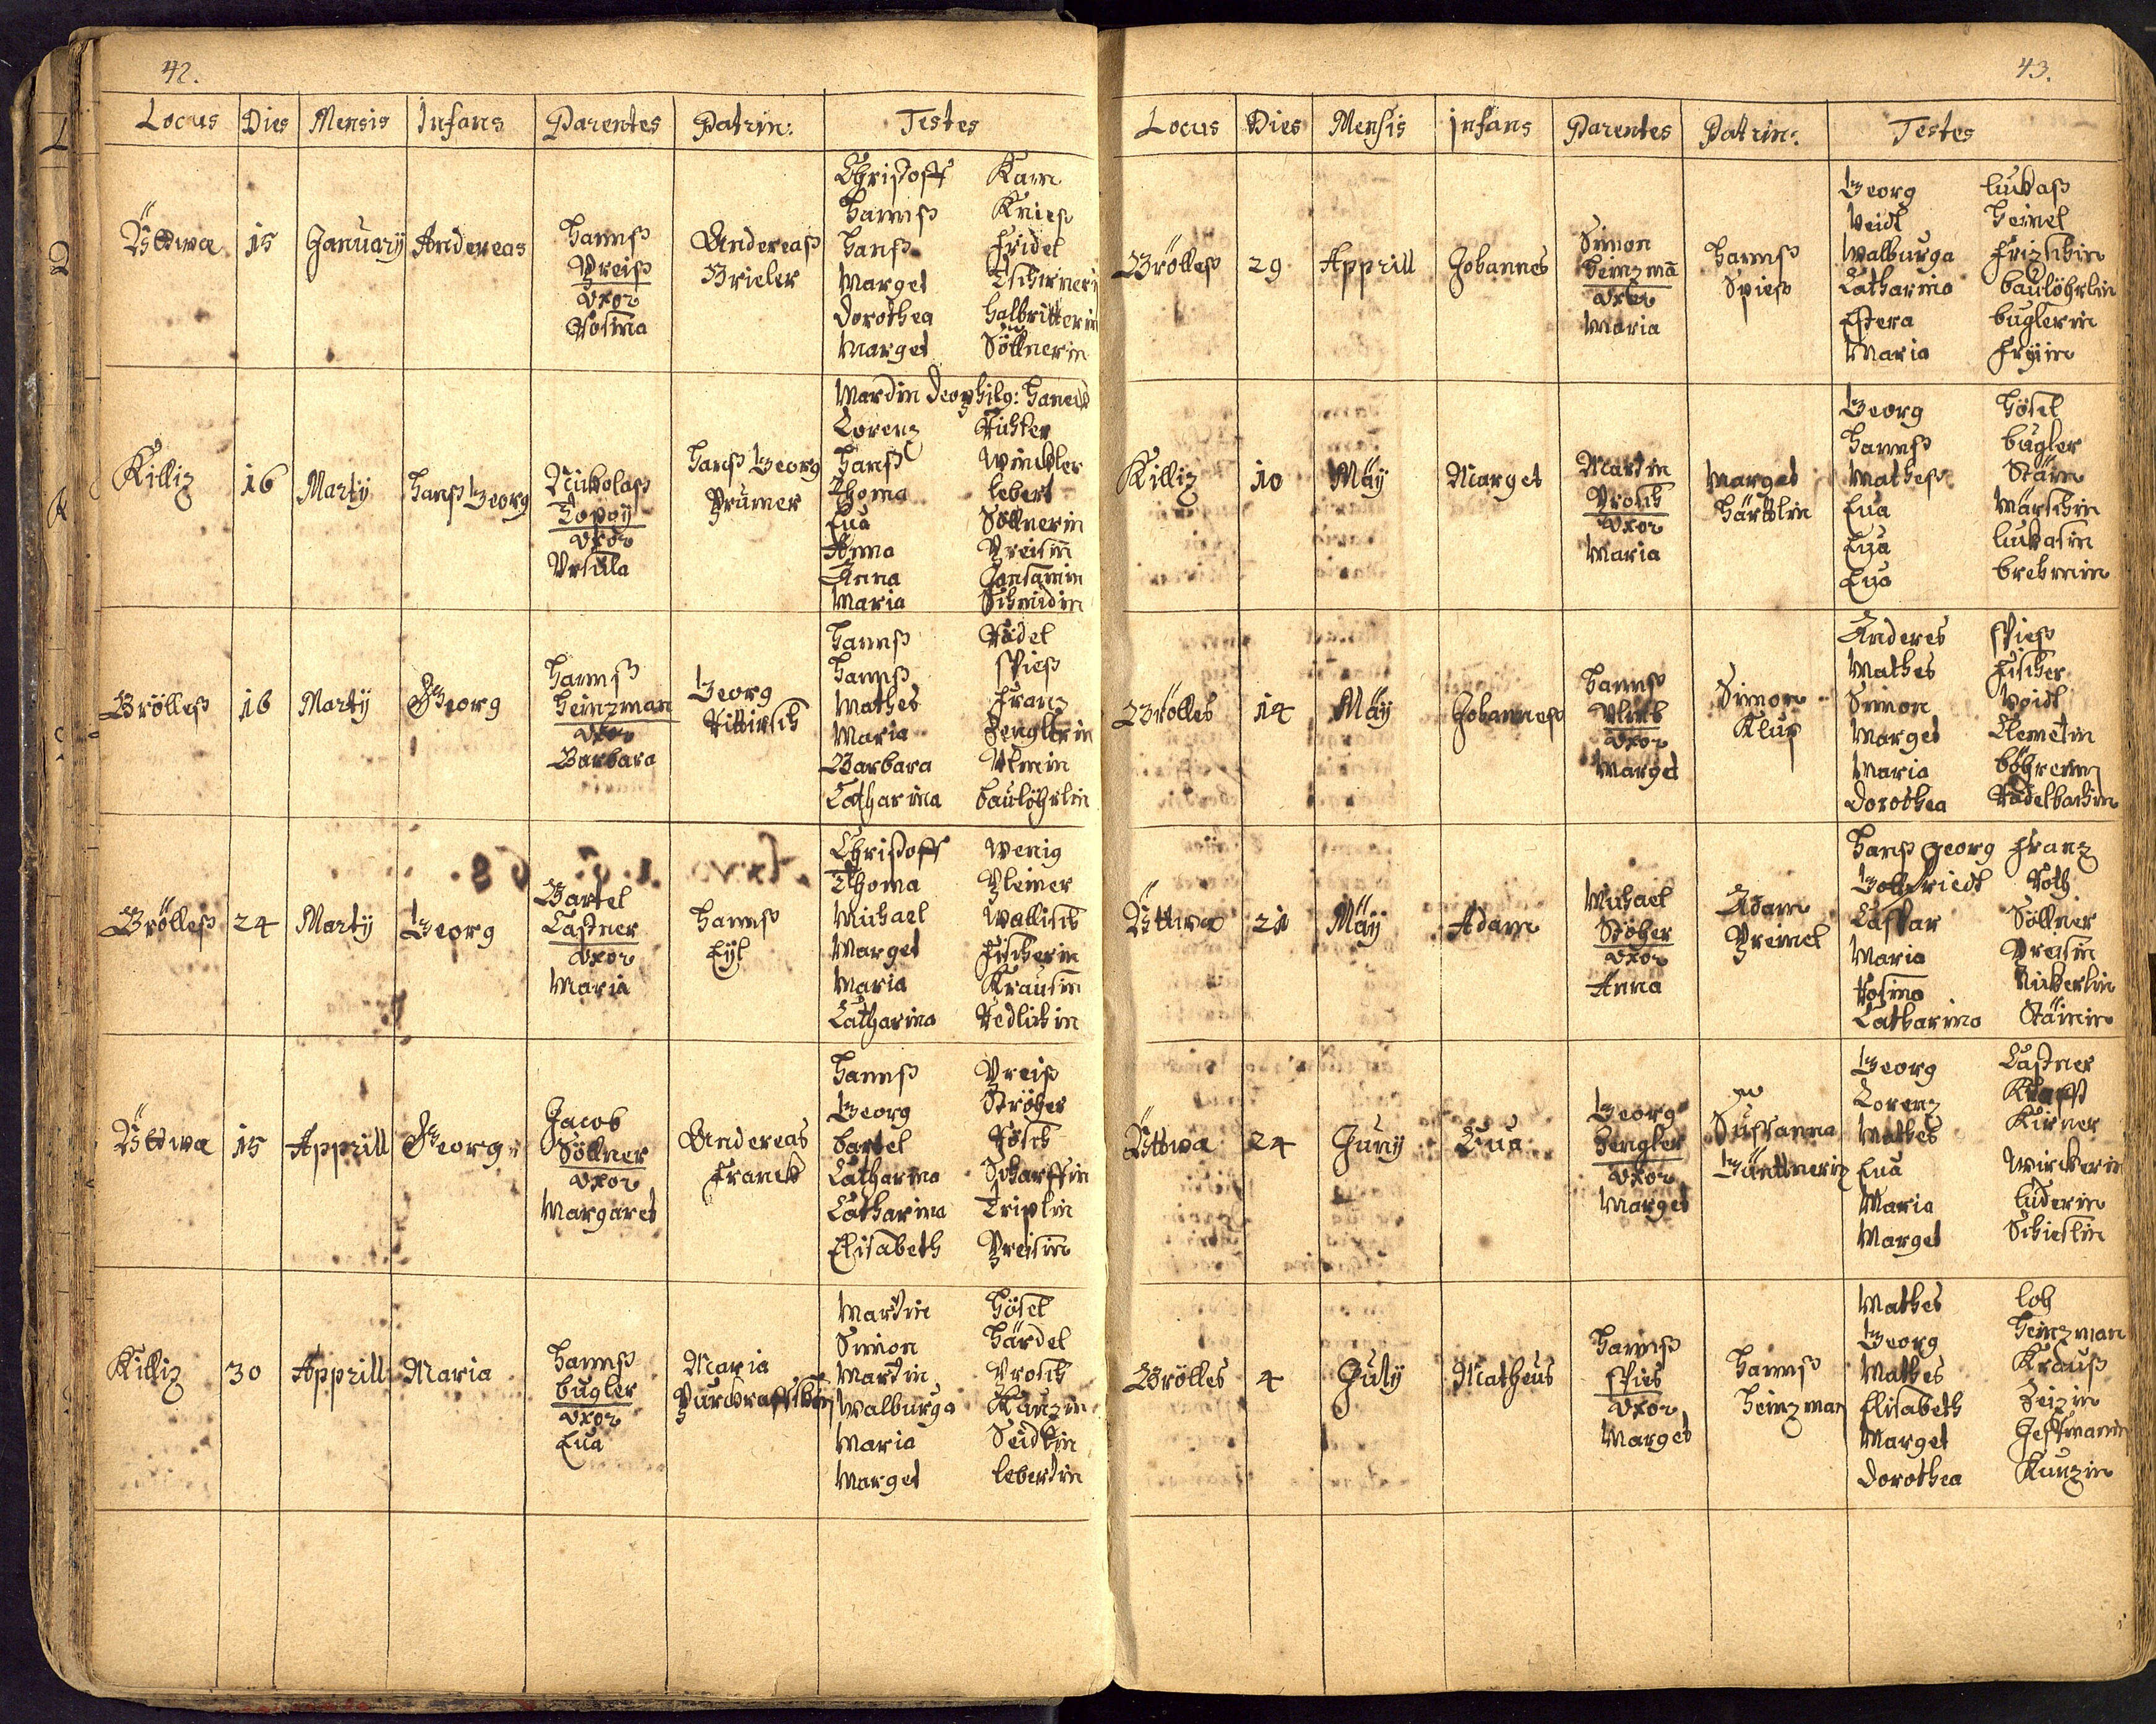 42.
Locus Dies Mensis Infans Parentes Patrin: Testes
Öttwa 15 January Andereas
Hannß
Preiß
Vxor
Rosina
Andereaß
Brieler
Christoff Kam
Hannß Knieß
Hanß Fridel
Marget Tschirneri
Dorothea Halbritterin
Marget Söllnerin
Killiz 16 Marty Hanß Georg
Nickolaß
Vxor
Vrsula
Hanß Georg
Prümer
Mardin
Lorenz Richter
Hanß Winckler
Thoma Lebert
Eua Söllnerin
Anna Preisin
Anna
Maria Schmidin
Brölleß 16 Marty Georg
Hannß
Heinzman
Vxor
Barbara
Georg
Hannß Rädel
Hannß Spieß
Mathes Franz
Maria Zenglerin
Barbara Vlmin
Catharina Baulöhrlin
Brölleß 24 Marty Georg
Bartel
Castner
Vxor
Maria
Hannß
Eÿl
Christoff Wenig
Thoma Pleiner
Michael Wallisch
Marget Fischerin
Maria Krausin
Catharina Redlichin
Öttwa 15 Apprill Georg
Jacob
Söllner
Vxor
Margaret
Andereas
Franck
Hannß Preiß
Georg Ströber
Bartel Rösch
Catharina Scharffin
Catharina Triplin
Elisabeth Preisin
Killiz 30 Apprill Maria
Hannß
Bugler
Vxor
Eua
Maria
Mardin Hösel
Simon Härdel
Martin Prosch
Walburga Kauzin
Maria Seidlin
Marget Lebertin
43.
Locus Dies Mensis Infans Parentes Patrin: Testes
Brölleß 29 Apprill Johannes
Simon
Heinzmā
Vxor
Maria
Hannß
Spieß
Georg Luckaß
Veidt Heinel
Walburga Frizschin
Catharina Baulöhrlin
Estera Buglerin
Maria Frÿin
Killiz 10 Mäy Marget
Martin
Prosch
Vxor
Maria
Marget
Härtlin
Georg Hösel
Hannß Bugler
Matheß Stäin
Eua Märschin
Eua Luckasin
Eua
Brölles 14 Mäy Johanneß
Hannß
Vlmb
Vxor
Marget
Simon
Kluß
Anderes Spieß
Mathes Fischer
Simon Voidt
Marget Clemetin
Maria
Dorothea Rädelbachin
Öttwa 21 Mäy Adam
Michael
Stöher
Vxor
Anna
Adam
Preinel
Hanß Georg Franz
Gottfriedt Roth
Caspar Söllner
Maria Preisin
Rosina
Catharina Stäinin
Öttwa 24 Juny Eua
Georg
Zengler
Vxor
Marget
Susanna
Günttnerin
Georg Castner
Lorenz Krafft
Mathes Kirner
Eua Wirckerin
Maria Luderin
Marget Schieslin
Brölles 4 July Matheus
Hannß
Spies
Vxor
Marget
Hannß
Heinzman
Mathes Loh
Georg Heinzman
Mathes Krauß
Elisabeth Zeizin
Marget
Dorothea Kunzin